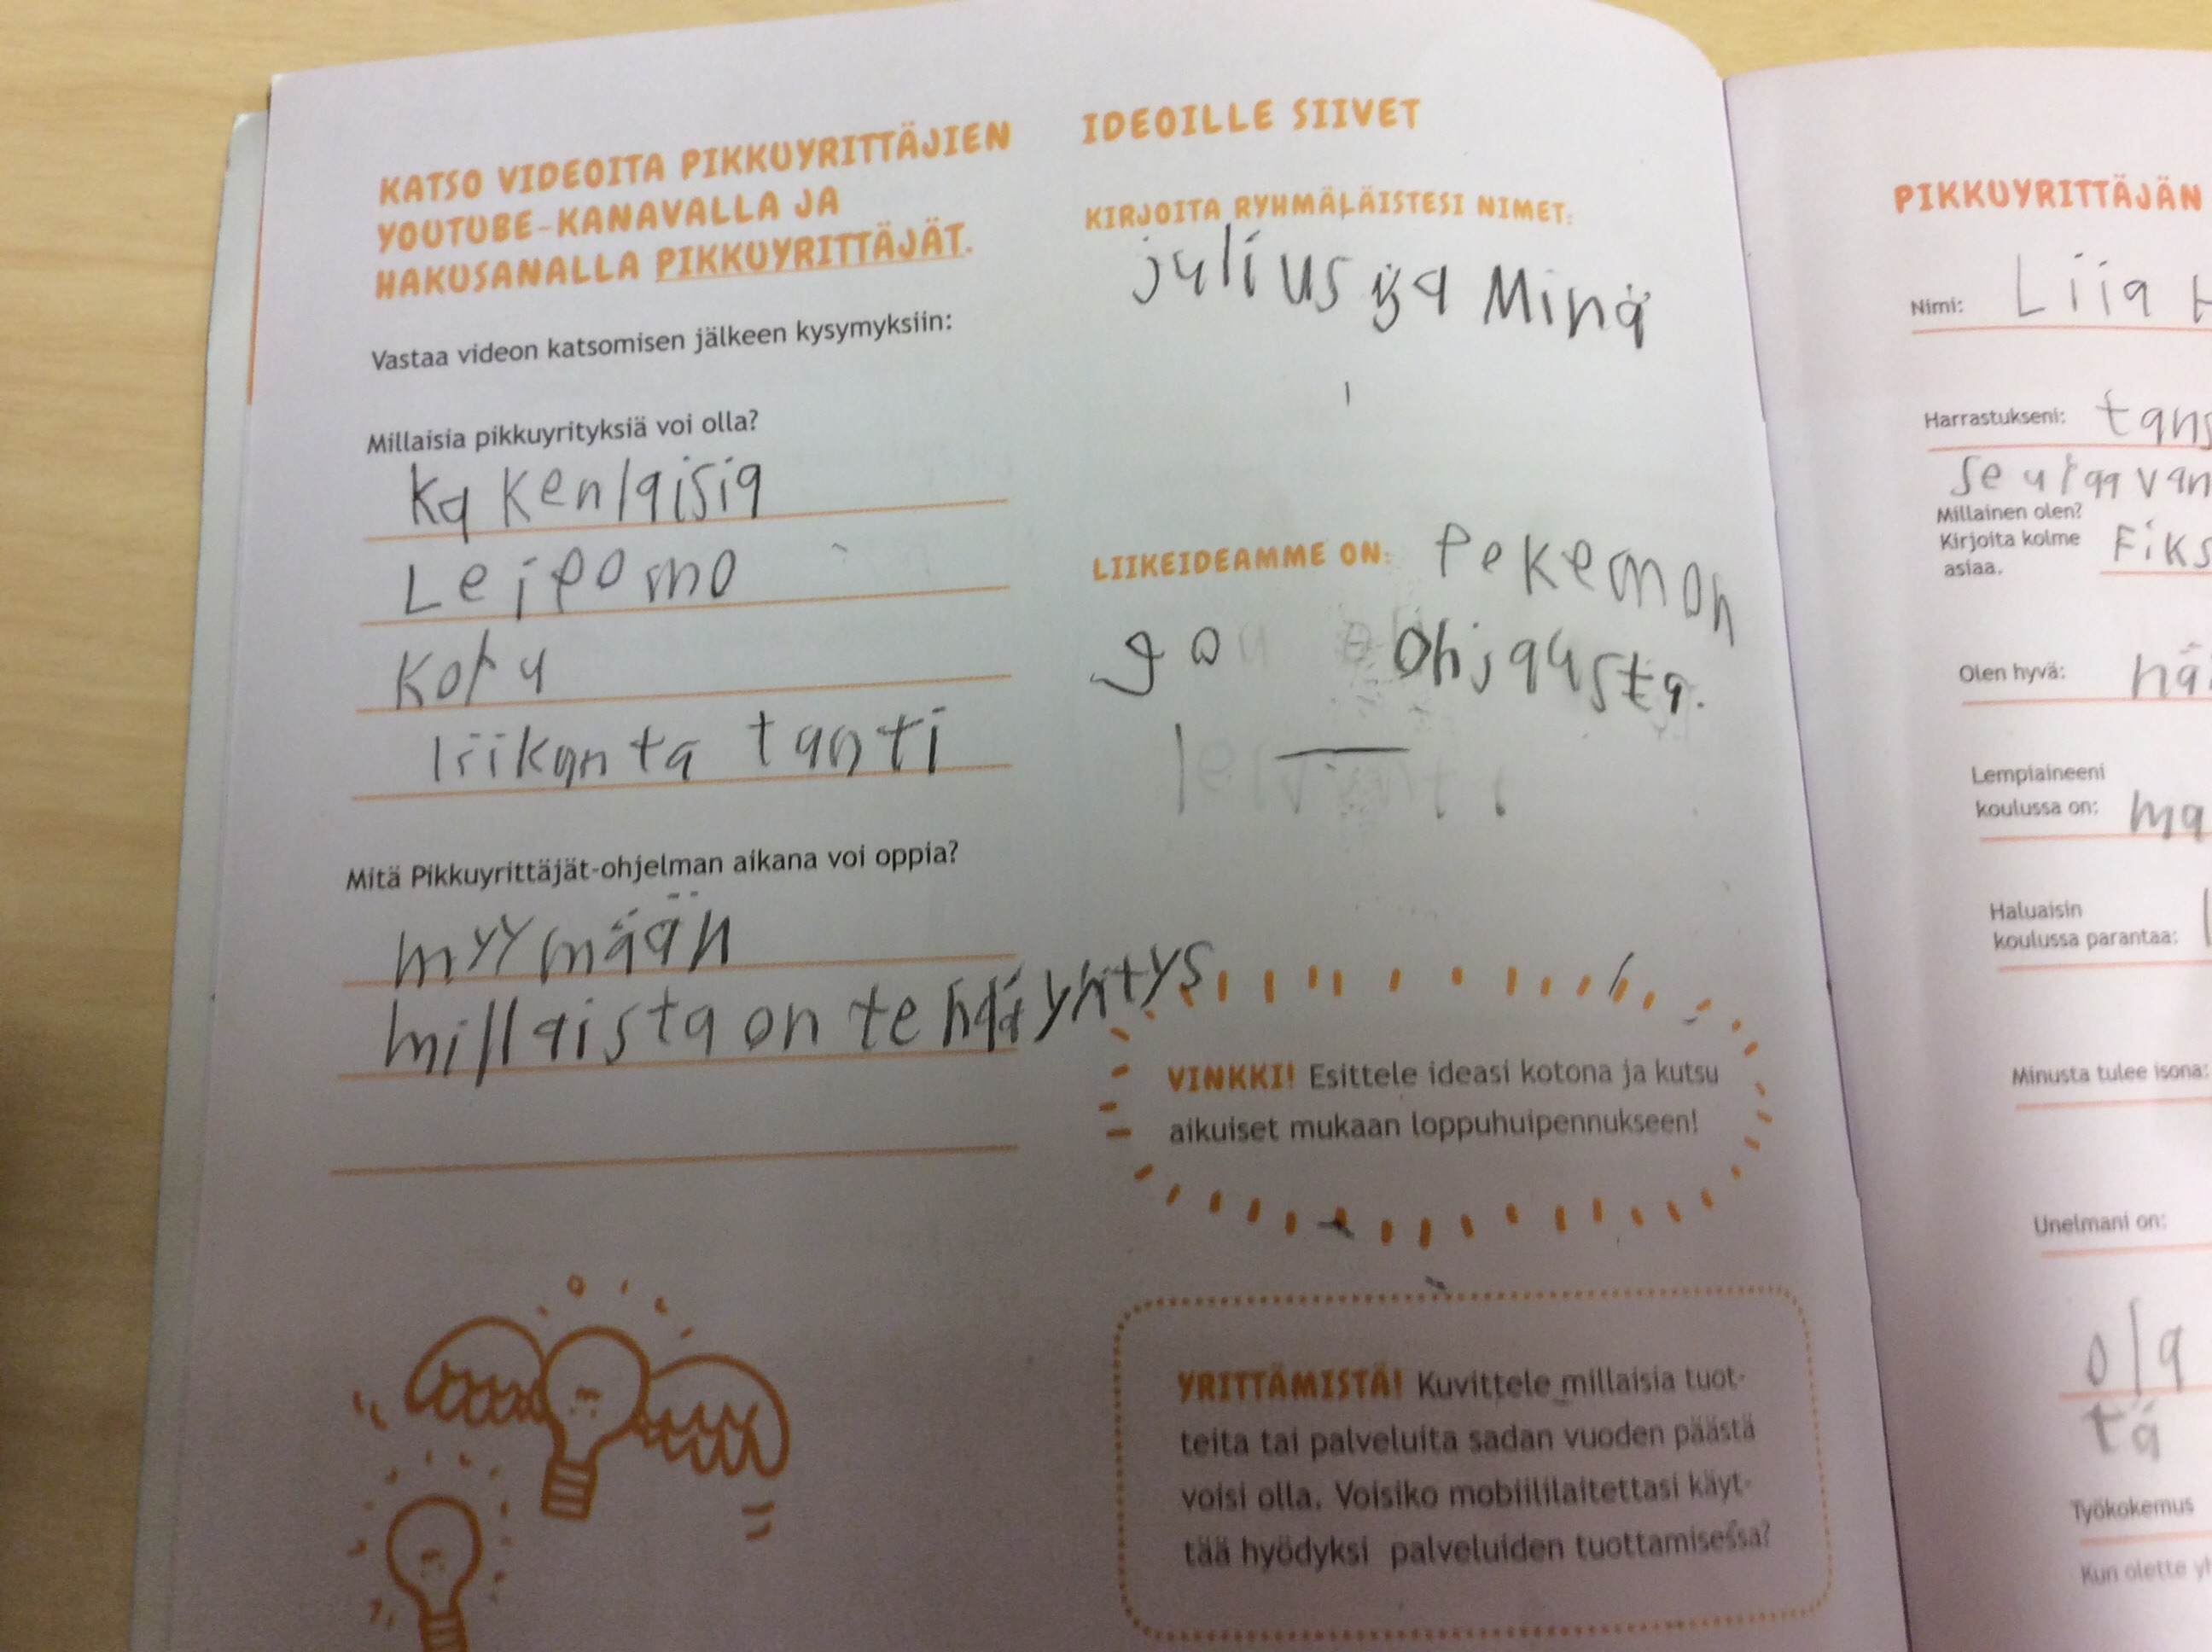 KATSO VIDEOITA PIKKUYRITTÄJIEN
YOUTUBE-KANAVALLA JA
HAKUSANALLA PIKKUYRITTÄJÄT.
Vastaa videon katsomisen jälkeen kysymyksiin:
Millaisia pikkuyrityksiä voi olla?
kakenlaisia
Leipomo
koru
liikanta tanti
Mitä Pikkuyrittäjät-ohjelman aikana voi oppia?
myymään
millaista on tehdä yritys
IDEOILLE SIIVET
KIRJOITA RYHMÄLÄISTESI NIMET:
julius ja Minä
LIIKEIDEAMME ON: Pokemon
go ohjausta.
VINKKI! Esittele ideasi kotona ja kutsu
aikuiset mukaan loppuhuipennukseen!
YRITTÄMISTÄ! Kuvittele millaisia tuot-
teita tai palveluita sadan vuoden päästä
voisi olla. Voisiko mobiililaitettasi käyt-
tää hyödyksi palveluiden tuottamisessa?
PIKKUYRITTÄJÄN
Nimi: Liia
Harrastukseni: tans
seuraavan
Millainen olen?
Kirjoita kolme
asiaa. Fiks
Olen hyvä:
Lempiaineeni
koulussa on: ma
Haluaisin
koulussa parantaa:
Minusta tulee isona:
Unelmani on:
ola
tä
Työkokemus
Kun olette